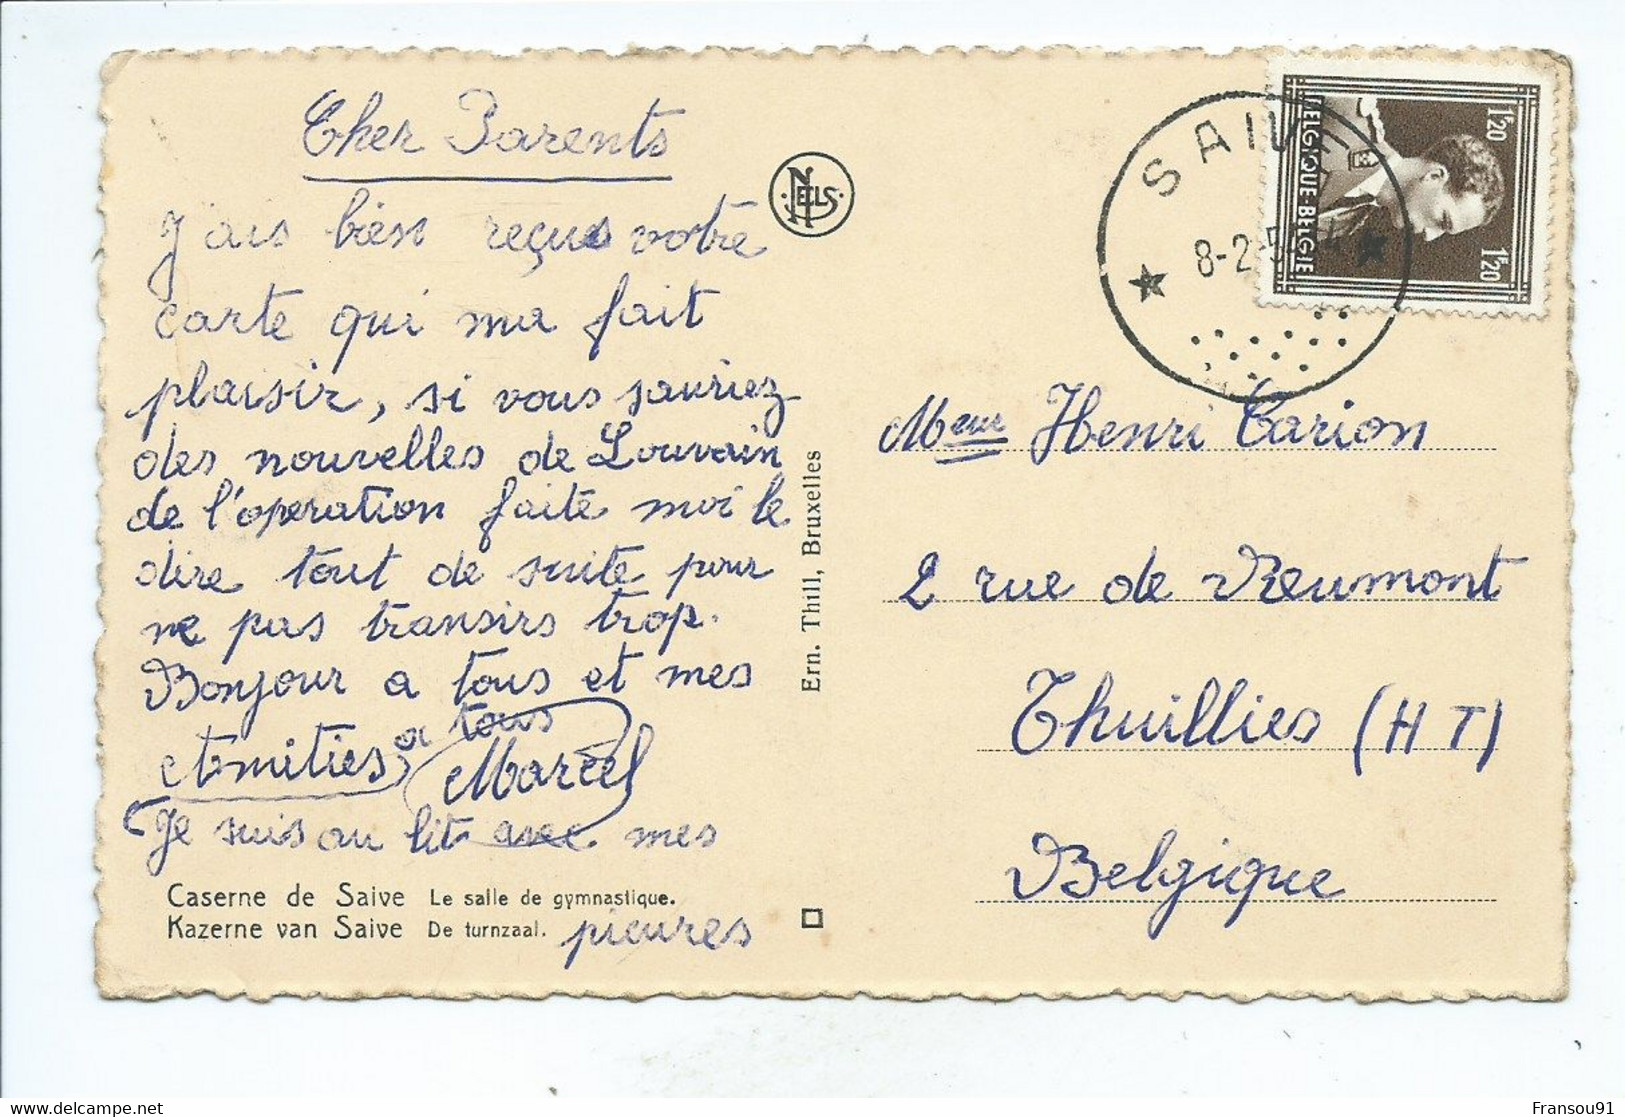 Cher Parents
J'ais bien reçus votre
carte qui ma fait
plaisir, si vous sauriez
des nouvelles de Louvain
de l'operation faite moi le
dire tout de suite pour
ne pas transirs trop.
Bonjour a tous et mes
Amities a tous
Marcel
Je suis au lit avec mes
pieures
Caserne de Saive Le salle de gymnastique.
Kazerne van Saive De turnzaal.
NELS
Ern. Thill, Bruxelles
SAIVE
8-2-5
BELGIQUE-BELGIE
1F20
1F20
Meur Henri Carion
2 rue de Reumont
Thuillies (HT)
Belgique
Fransou91